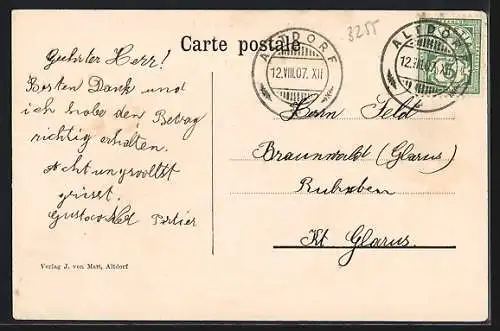 Carte postale
3255
ALTDORF
12.VIII.07. XII
ALTDORF
12.VIII.07. XII
5
Geehrter Herr!
Besten Dank und
ich habe den Betrag
richtig erhalten.
Achtungsvollst
grüsst
Portier
Herrn Feld
Braunwald (Glarus)
Kt Glarus.
Verlag J. von Matt, Altdorf